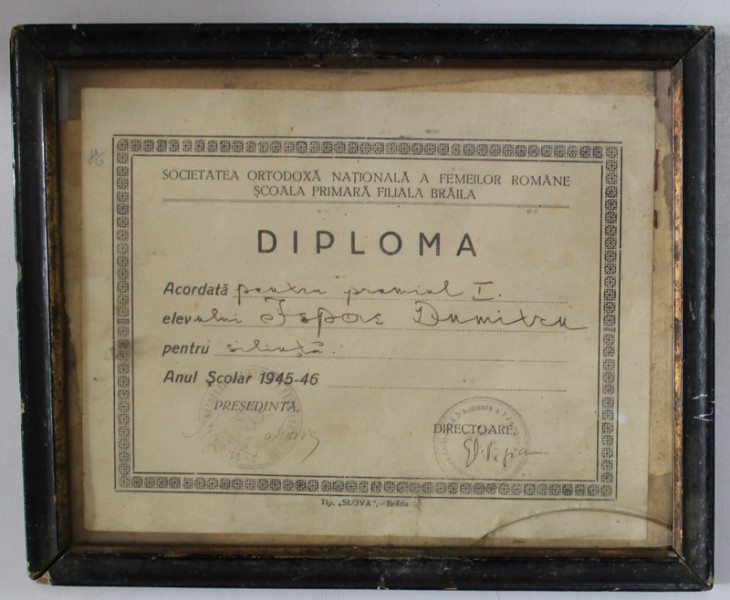 SOCIETATEA ORTODOXĂ NAȚIONALĂ A FEMEILOR ROMÂNE
ȘCOALA PRIMARĂ FILIALA BRĂILA
DIPLOMA
Acordată pentru premiul I.
elevului Dumitru
pentru silință.
Anul Școlar 1945-46
PREȘEDINTA,
DIRECTOARE,
Tip. „SLOVA".-Brăila